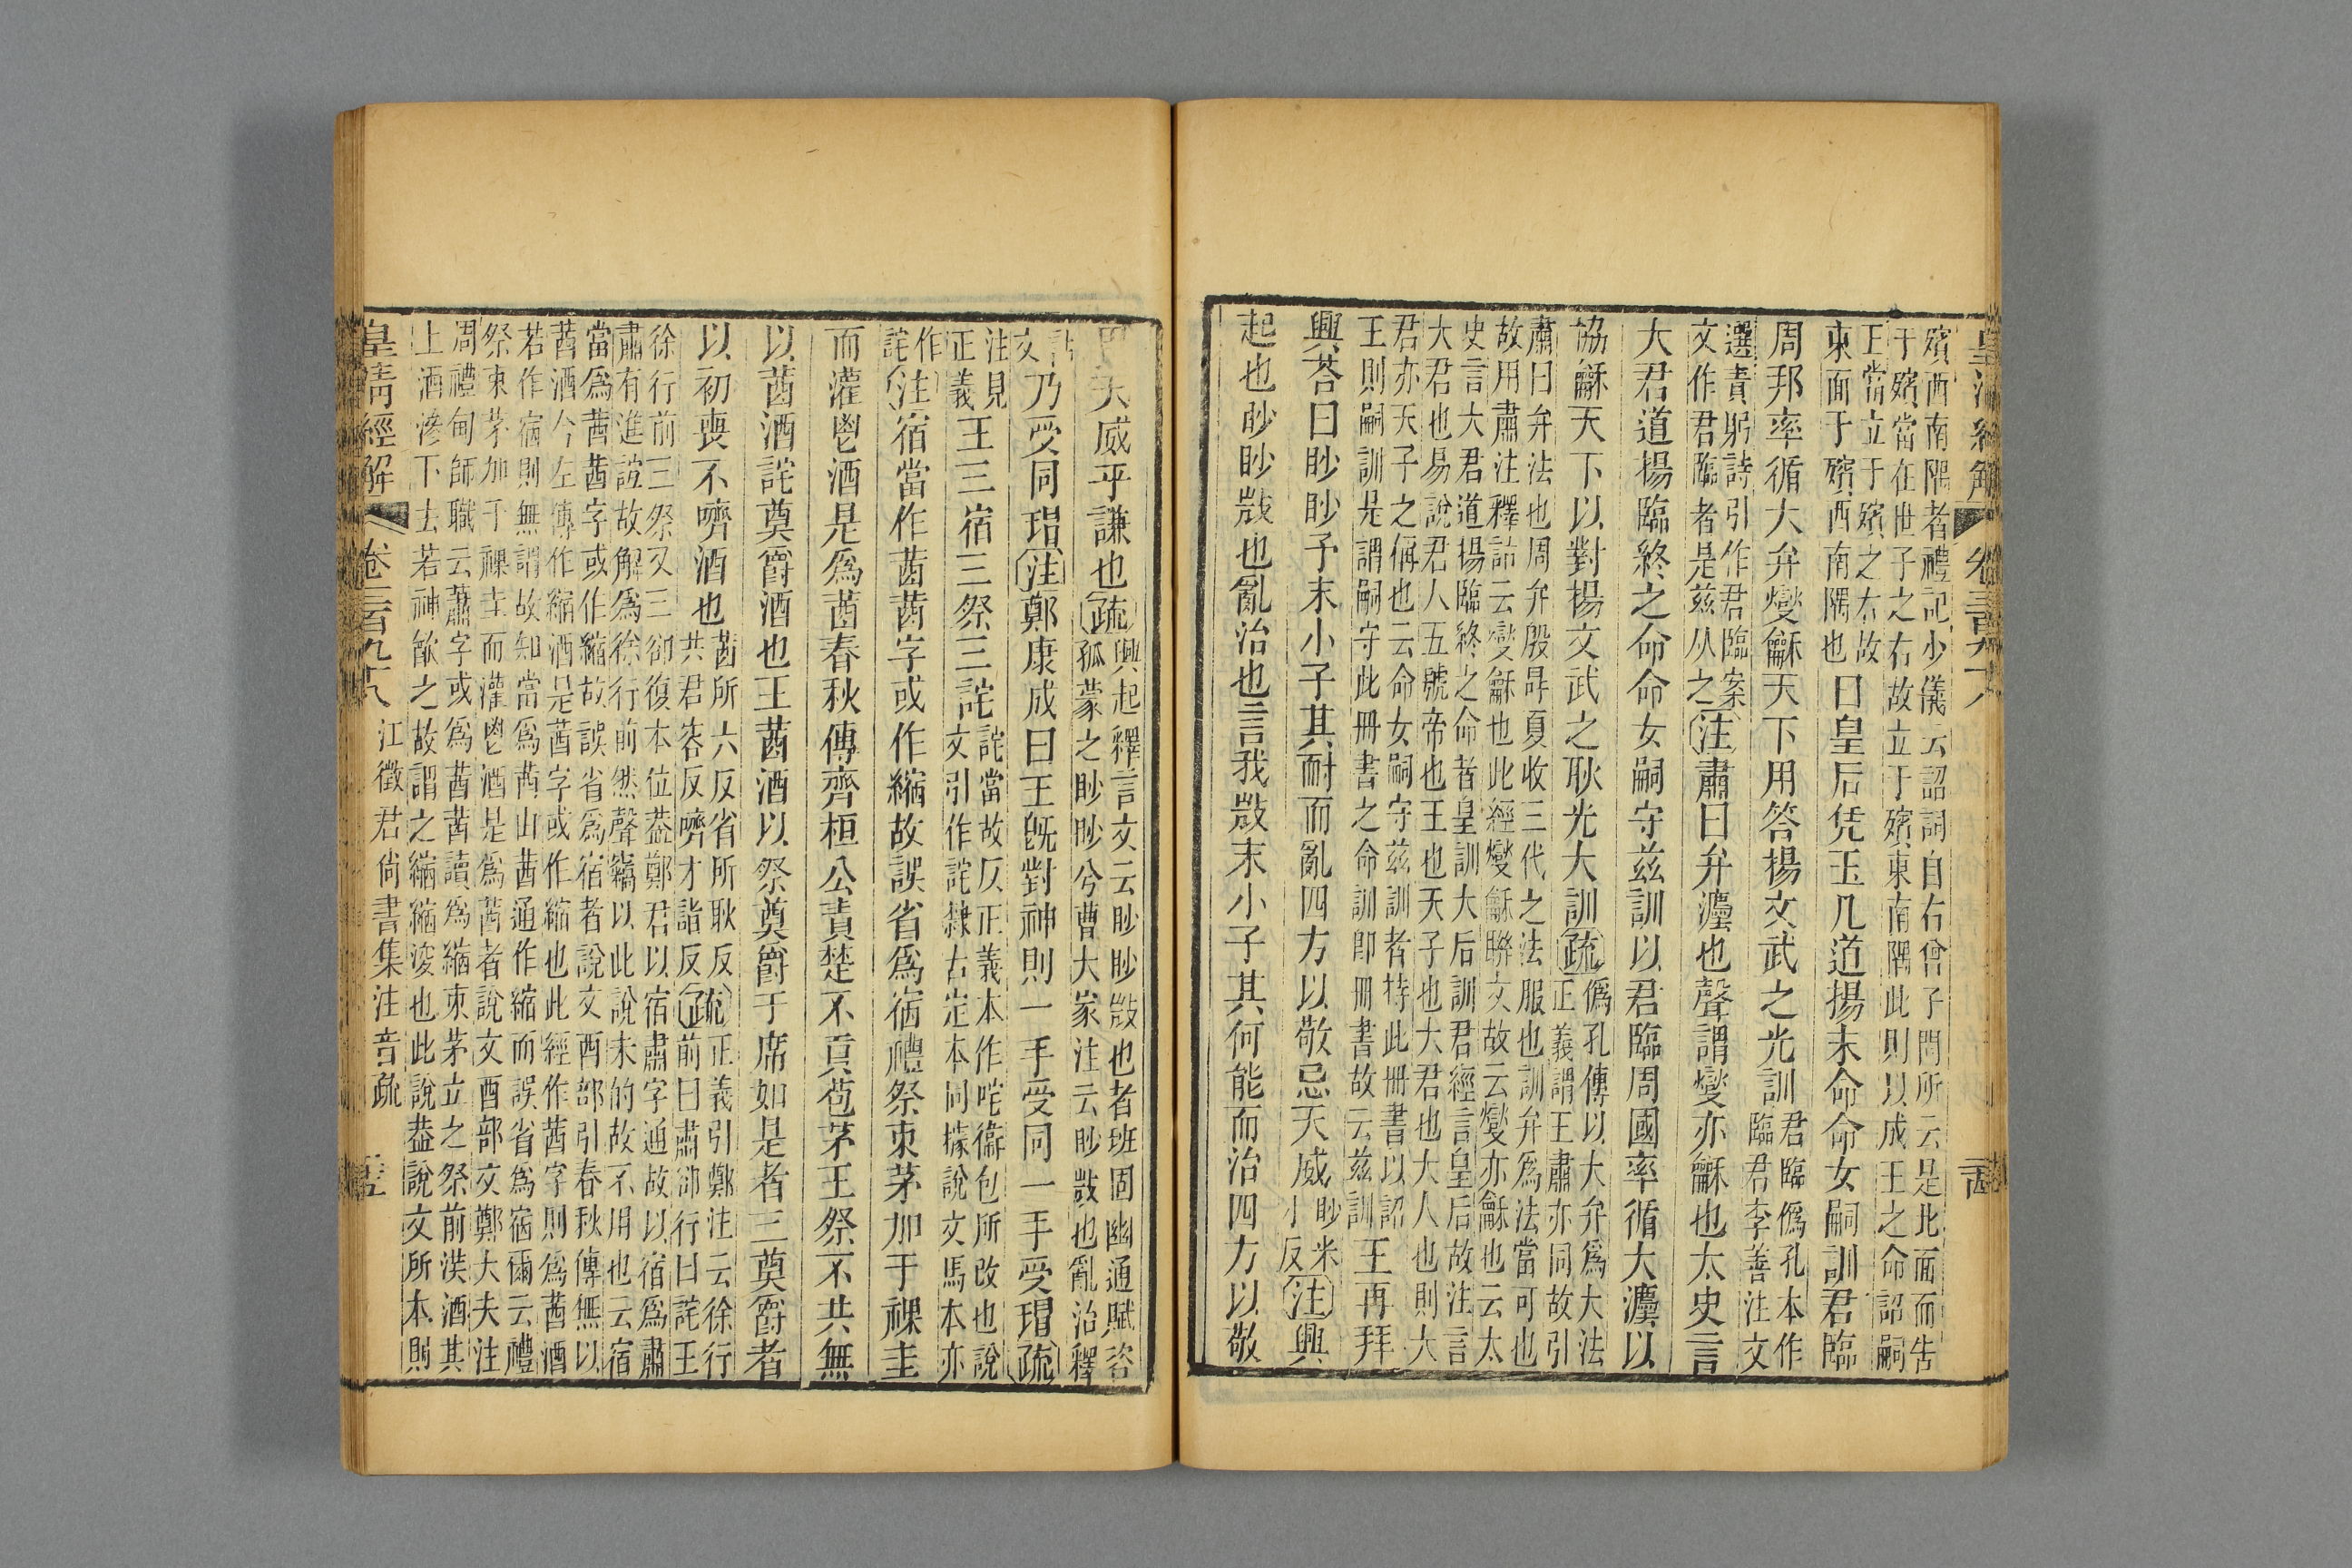 皇清經解 卷三百九十八
殯西南隅者禮記少儀云詔詞自右曾子問所云是北面而告
于殯當在世子之右故立于殯東南隅此則以成王之命詔嗣
王當立于殯之右故
東面于殯西南隅也
曰皇后凭玉几道揚末命命女嗣訓君臨
周邦率循大弁燮龢天下用答揚文武之光訓
君臨僞孔本作
臨君李善注文
選責躬詩引作君臨案
文作君臨者是兹从之
注肅曰弁灋也聲謂燮亦龢也太史言
大君道揚臨終之命命女嗣守兹訓以君臨周國率循大灋以
協龢天下以對揚文武之耿光大訓疏
僞孔傳以大弁爲大法
正義謂王肅亦同故引
肅曰弁法也周弁殷冔夏收三代之法服也訓弁爲法當可也
故用肅注釋詁云燮龢也此經燮龢聯文故云燮亦龢也云太
史言大君道揚臨終之命者皇訓大后訓君經言皇后故注言
大君也易說君人五號帝也王也天子也大君也大人也則大
君亦天子之偁也云命女嗣守兹訓者持此冊書以詔
王則嗣訓是謂嗣守此冊書之命訓即冊書故云兹訓
王再拜
興荅曰眇眇予末小子其耐而亂四方以敬忌天威
眇米
小反
注興
起也眇眇𢼸也亂治也言我𢼸末小子其何能而治四方以敬
天威乎謙也疏
興起釋言文云眇眇𢼸也者班固幽通賦咨
孤蒙之眇眇兮曹大家注云眇𢼸也亂治釋
詁
文
乃受同瑁注鄭康成曰王既對神則一手受同一手受瑁疏
注見
正義
王三宿三祭三詫
詫當故仅正義本作咤衞包所改也說
文引作詫隸古定本同據說文馬本亦
作
詫
注宿當作莤莤字或作縮故誤省爲宿禮祭束茅加于祼圭
而灌鬯酒是爲莤春秋傳齊桓公責楚不貢苞茅王祭不共無
以莤酒詫奠爵酒也王莤酒以祭奠爵于席如是者三奠爵者
以初喪不嚌酒也
莤所六反省所耿反
共君容反嚌才詣反
疏
正義引鄭注云徐行
前曰肅卻行曰詫王
徐行前三祭又三卻復本位葢鄭君以宿肅字通故以宿爲肅
肅有進誼故解爲徐行前然聲竊以此說未的故不用也云宿
當爲莤莤字或作縮故誤省爲宿者說文酉部引春秋傳無以
莤酒今左傳作縮酒是莤字或作縮也此經作莤字則爲莤酒
若作宿則無謂故知當爲莤由莤通作縮而誤省爲宿爾云禮
祭束茅加于祼圭而灌鬯酒是爲莤者說文酉部文鄭大夫注
周禮甸師職云蕭字或爲莤莤讀爲縮束茅立之祭前沃酒其
上酒滲下去若神歆之故謂之縮縮浚也此說葢說文所本則
皇清經解 卷三百九十八 江徵君尚書集注音疏